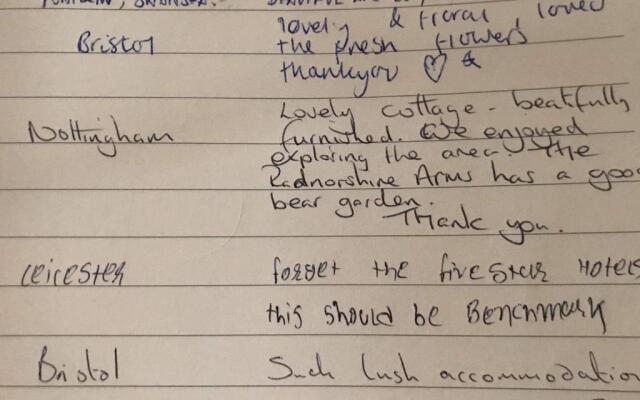 lovely & floral, loved
Bristol the fresh flowers
thankyou ♡ &
Lovely cottage - beatifully
Nottingham furnished. We enjoyed
exploring the area. The
Radnorshire Arms has a good
bear garden.
Thank you.
Leicester forget the five star Hotels
this should be Benchmark
Bristol Such lush accommodation